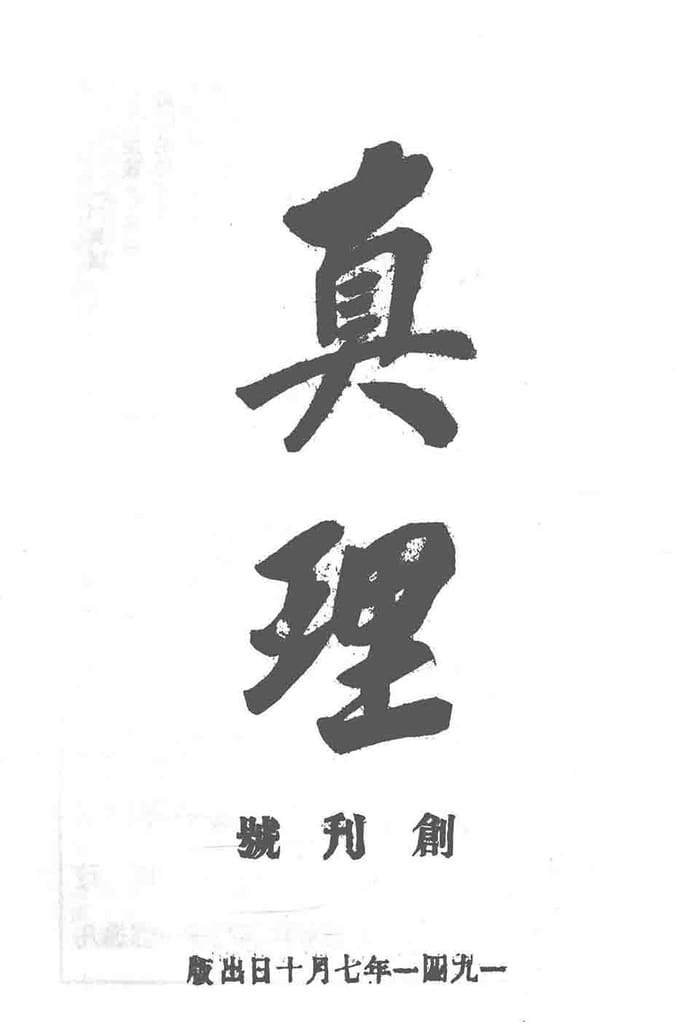 真理
創刊號
一九四一年七月十日出版